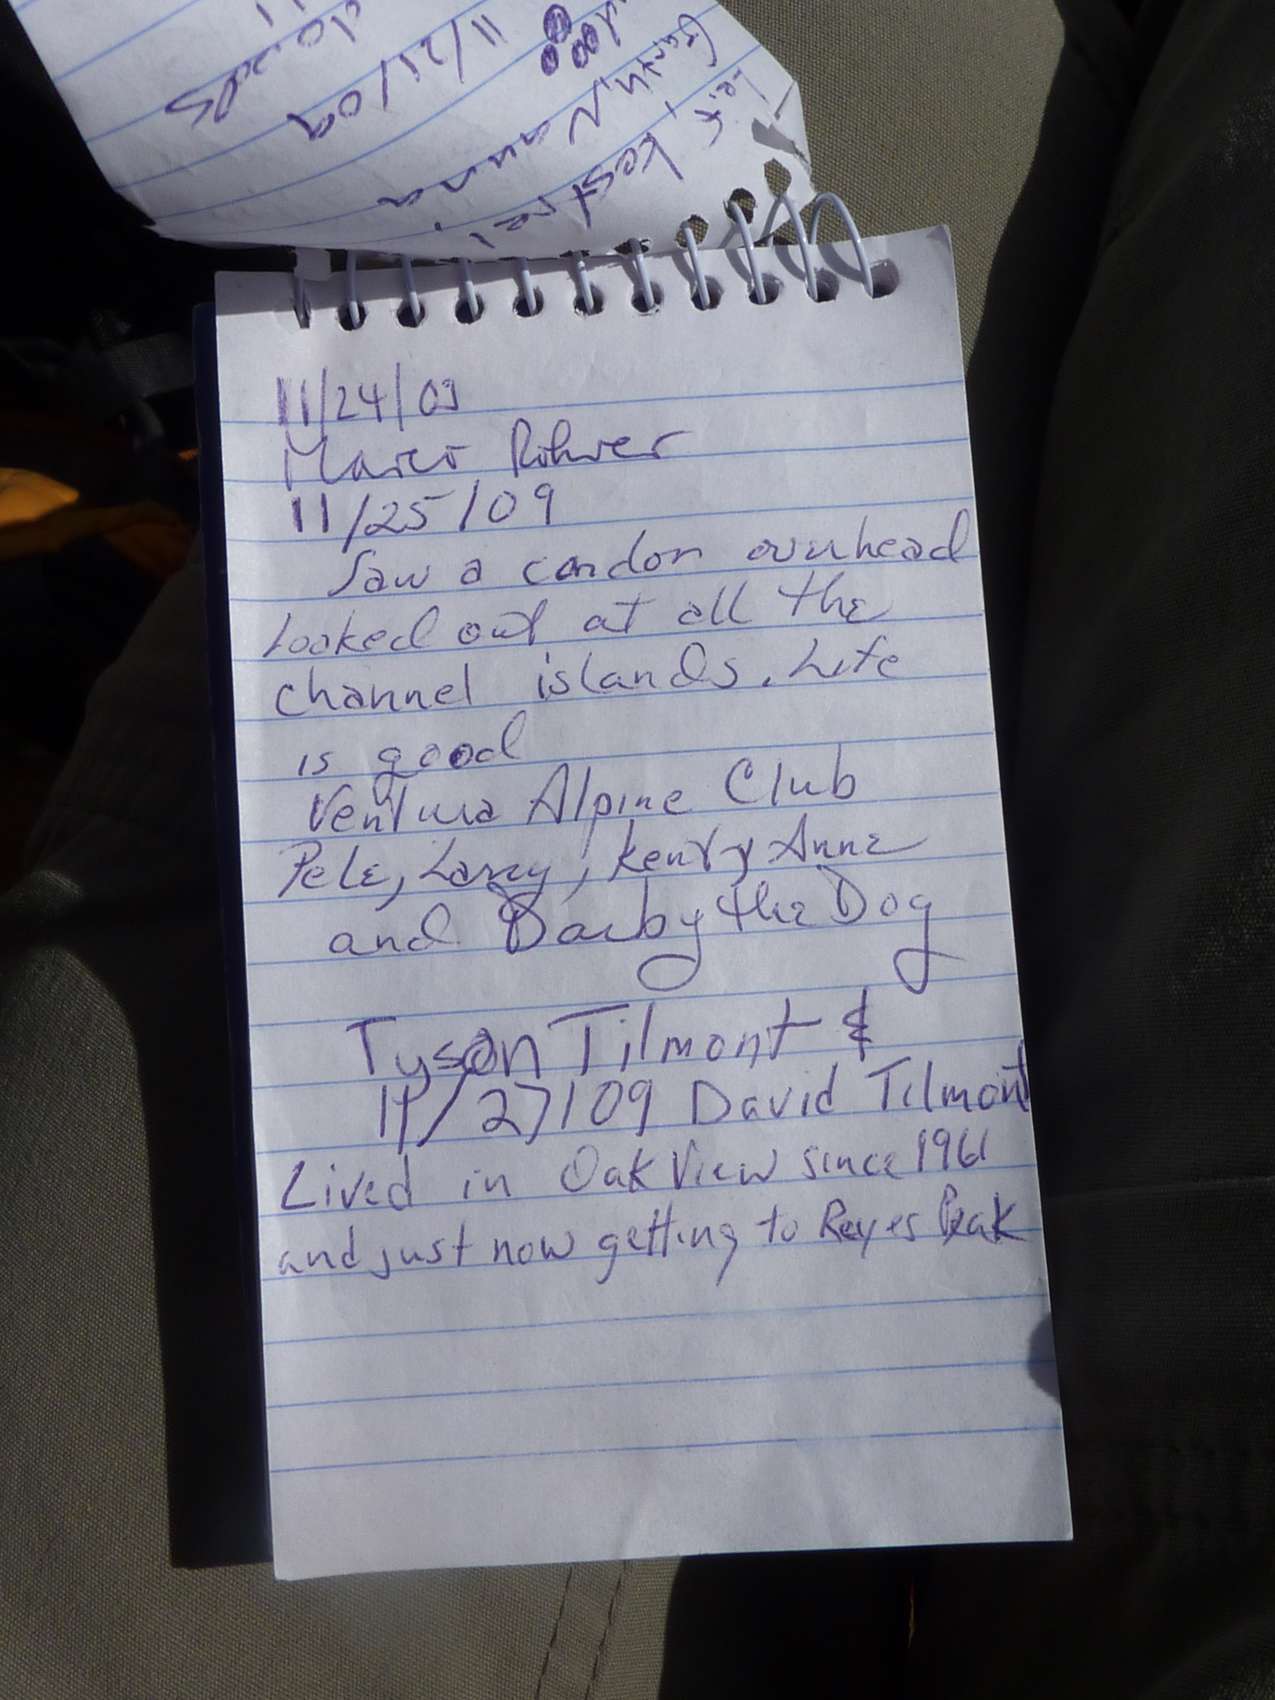 Kestrel,
Nauna
11/21/09
11/24/09
Marco Rohrer
11/25/09
Saw a condor overhead
Looked out at all the
channel islands. Life
is good
Ventura Alpine Club
Pete, Larry, Kenty Anne
and Darby the Dog
Tyson Tilmont &
11/27/09 David Tilmont
Lived in Oak View since 1961
and just now getting to Reyes Peak